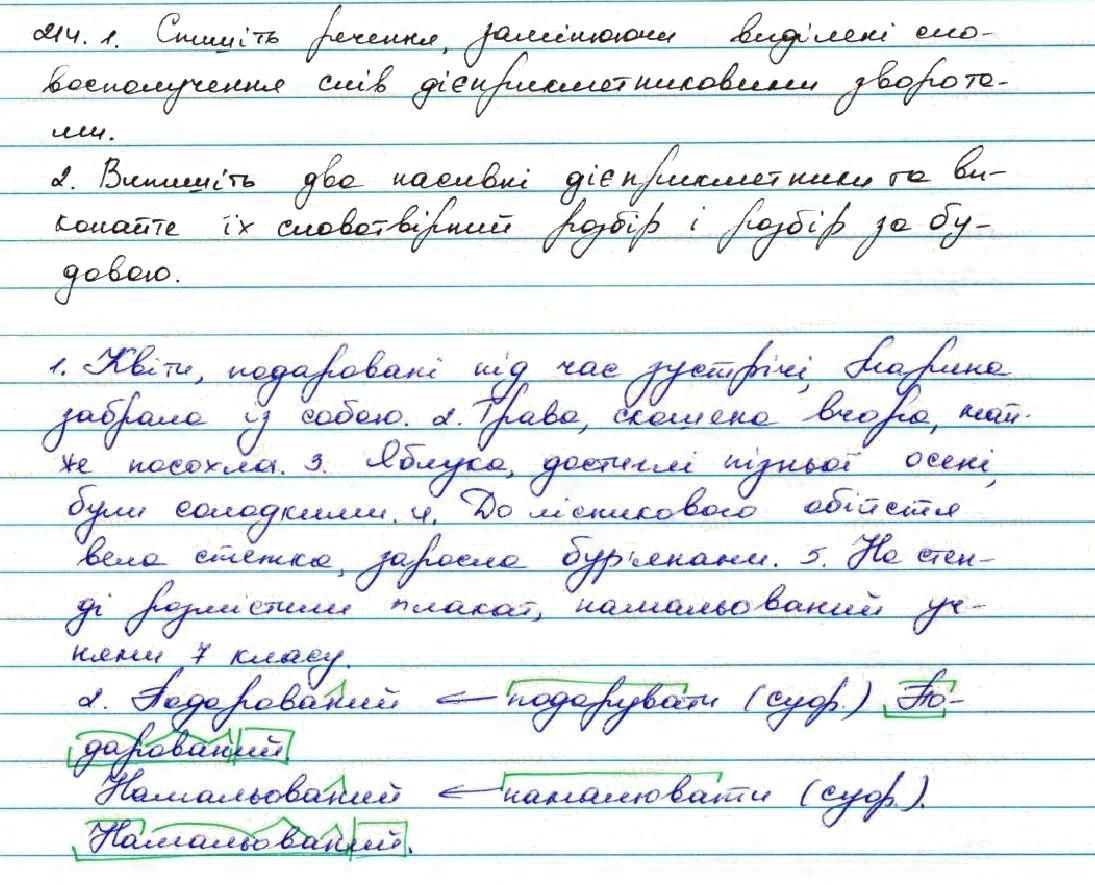 214. 1. Спишіть речення, замінюючи виділені сло-
восполучення слів дієприкметниковими зворота-
ми.
2. Випишіть два пасивні дієприкметники та ви-
конайте їх словотвірний розбір і розбір за бу-
довою.
1. Квіти, подаровані під час зустрічі, Марина
забрала із собою. 2. Трава, скошена вчора, май-
же посохла. 3. Яблука, достиглі пізньої осені,
були солодкими. 4. До лісникового обійстя
вела стежка, заросла бур'янами. 5. На стен-
ді розмістили плакат, намальований уч-
нями 7 класу.
2. Подарований ← подарувати (суф.) По-
дарований
Намальований ← намалювати (суф.).
Намальований.